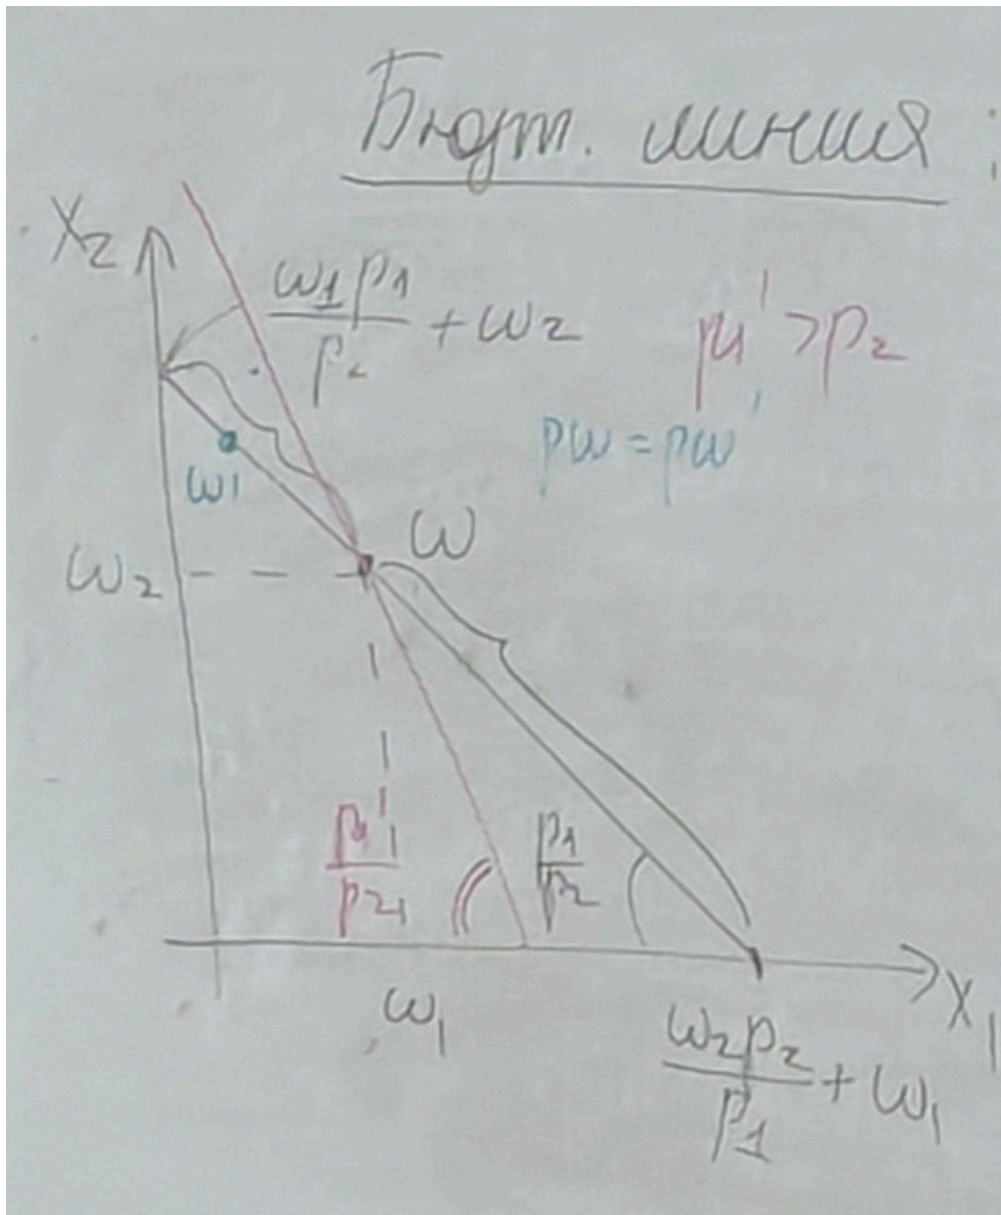 Бюдж. линия:
X₂
ω₁p₁/p₂ + ω₂
p₁' > p₂
pω = pω'
ω'
ω
ω₂
p₁'/p₂
p₁/p₂
ω₁
X₁
ω₂p₂/p₁ + ω₁